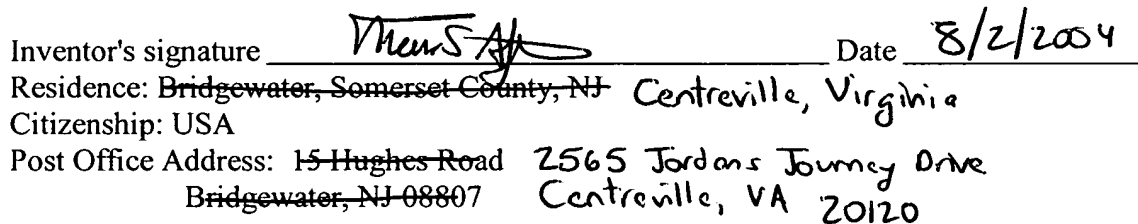 Inventor's signature Date 8/2/2004
Residence: Bridgewater, Somerset County, NJ Centreville, Virginia
Citizenship: USA
Post Office Address: 15 Hughes Road 2565 Jordans Journey Drive
Bridgewater, NJ 08807 Centreville, VA 20120